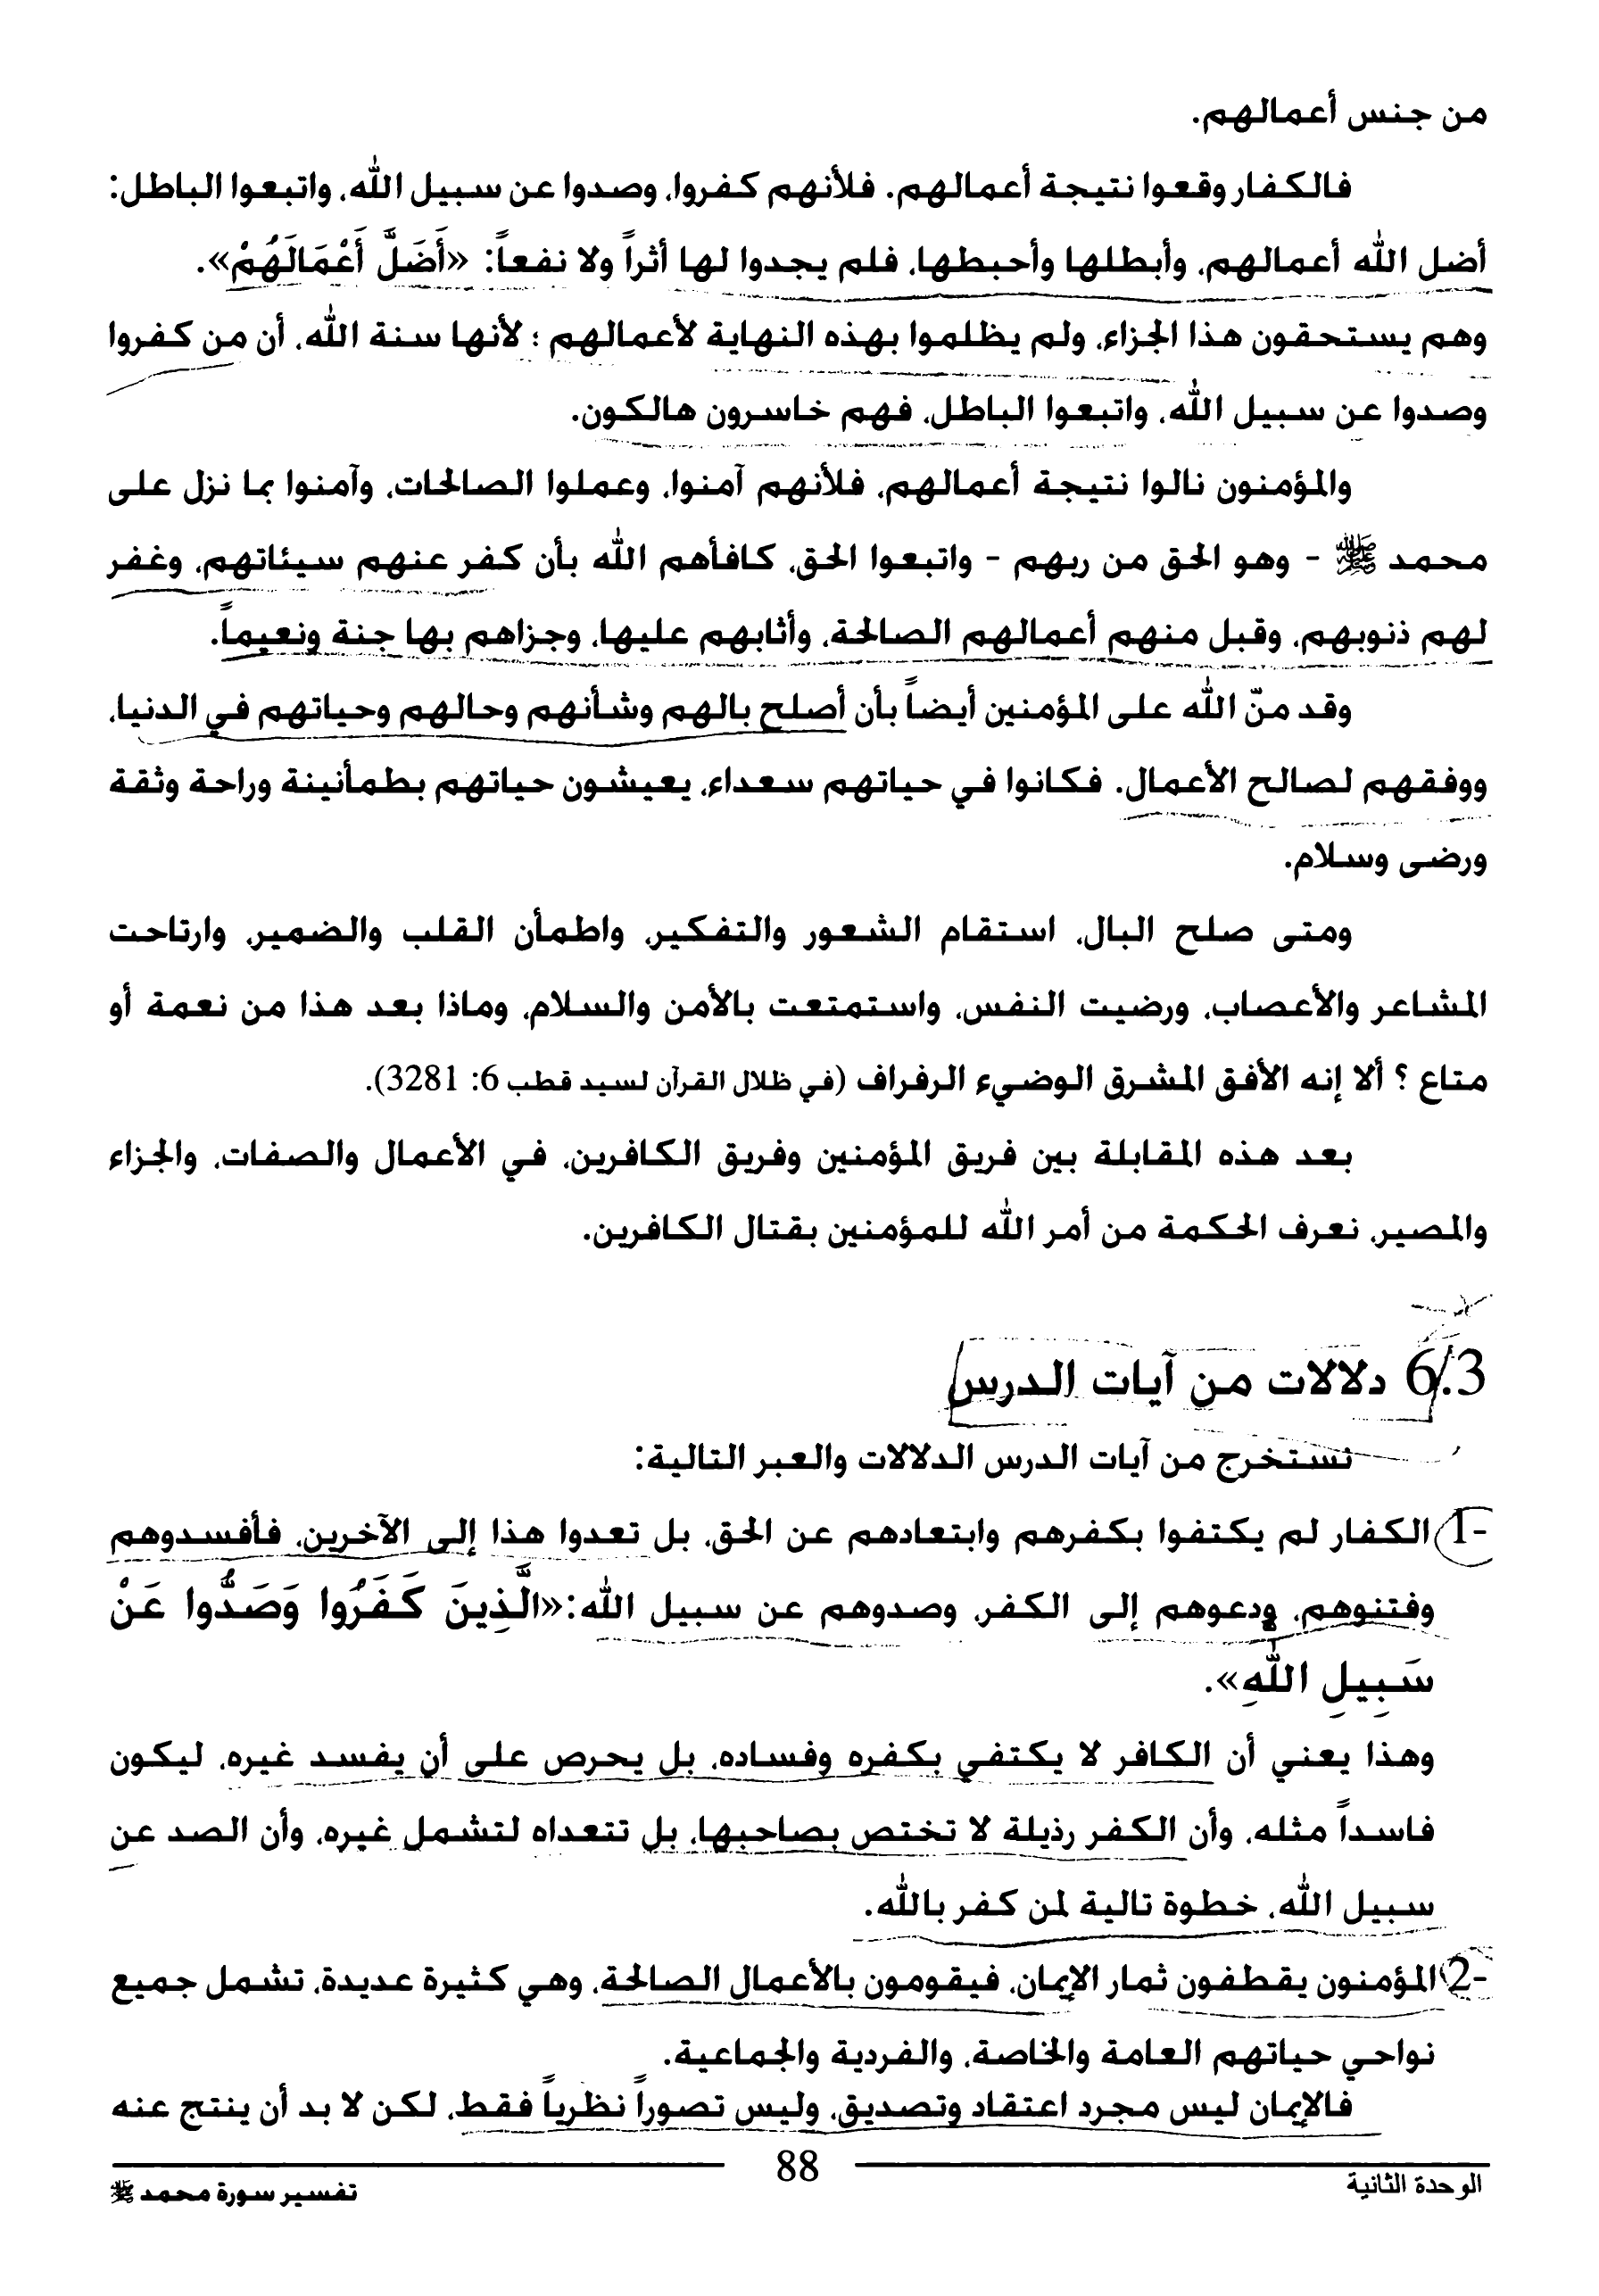 من جنس أعمالهم.
فالكفار وقعوا نتيجة أعمالهم. فلأنهم كفروا، وصدوا عن سبيل الله، واتبعوا الباطل:
أضل الله أعمالهم، وأبطلها وأحبطها، فلم يجدوا لها أثراً ولا نفعاً: «أَضَلَّ أَعْمَالَهُمْ».
وهم يستحقون هذا الجزاء، ولم يظلموا بهذه النهاية لأعمالهم ؛ لأنها سنة الله، أن من كفروا
وصدوا عن سبيل الله، واتبعوا الباطل، فهم خاسرون هالكون.
والمؤمنون نالوا نتيجة أعمالهم، فلأنهم آمنوا، وعملوا الصالحات، وآمنوا بما نزل على
محمد ﷺ - وهو الحق من ربهم - واتبعوا الحق، كافأهم الله بأن كفر عنهم سيئاتهم، وغفر
لهم ذنوبهم، وقبل منهم أعمالهم الصالحة، وأثابهم عليها، وجزاهم بها جنة ونعيماً.
وقد منّ الله على المؤمنين أيضاً بأن أصلح بالهم وشأنهم وحالهم وحياتهم في الدنيا،
ووفقهم لصالح الأعمال. فكانوا في حياتهم سعداء، يعيشون حياتهم بطمأنينة وراحة وثقة
ورضى وسلام.
ومتى صلح البال، استقام الشعور والتفكير، واطمأن القلب والضمير، وارتاحت
المشاعر والأعصاب، ورضيت النفس، واستمتعت بالأمن والسلام، وماذا بعد هذا من نعمة أو
متاع ؟ ألا إنه الأفق المشرق الوضيء الرفراف (في ظلال القرآن لسيد قطب 6: 3281).
بعد هذه المقابلة بين فريق المؤمنين وفريق الكافرين، في الأعمال والصفات، والجزاء
والمصير، نعرف الحكمة من أمر الله للمؤمنين بقتال الكافرين.
6.3 دلالات من آيات الدرس
نستخرج من آيات الدرس الدلالات والعبر التالية:
1- الكفار لم يكتفوا بكفرهم وابتعادهم عن الحق، بل تعدوا هذا إلى الآخرين، فأفسدوهم
وفتنوهم، ودعوهم إلى الكفر، وصدوهم عن سبيل الله:«الَّذِينَ كَفَرُوا وَصَدُّوا عَنْ
سَبِيلِ اللَّهِ».
وهذا يعني أن الكافر لا يكتفي بكفره وفساده، بل يحرص على أن يفسد غيره، ليكون
فاسداً مثله، وأن الكفر رذيلة لا تختص بصاحبها، بل تتعداه لتشمل غيره، وأن الصد عن
سبيل الله، خطوة تالية لمن كفر بالله.
2- المؤمنون يقطفون ثمار الإيمان، فيقومون بالأعمال الصالحة، وهي كثيرة عديدة، تشمل جميع
نواحي حياتهم العامة والخاصة، والفردية والجماعية.
فالإيمان ليس مجرد اعتقاد وتصديق، وليس تصوراً نظرياً فقط، لكن لا بد أن ينتج عنه
88
الوحدة الثانية
تفسير سورة محمد ﷺ